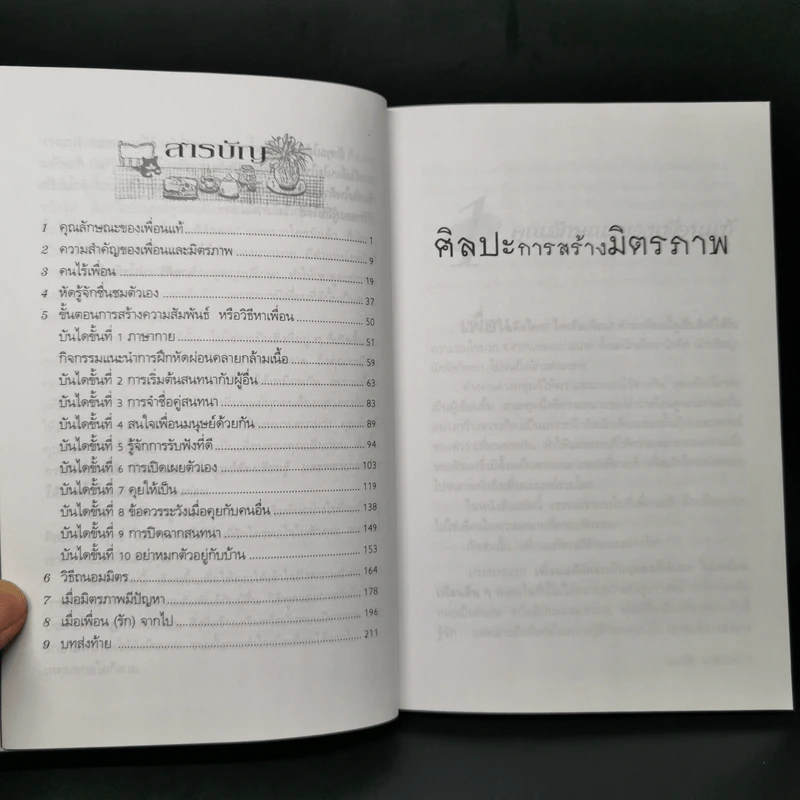 สารบัญ
1 คุณลักษณะของเพื่อนแท้ 1
2 ความสำคัญของเพื่อนและมิตรภาพ 9
3 คนไร้เพื่อน 19
4 หัดรู้จักชื่นชมตัวเอง 37
5 ขั้นตอนการสร้างความสัมพันธ์ หรือวิธีหาเพื่อน 50
บันไดขั้นที่ 1 ภาษากาย 51
กิจกรรมแนะนำการฝึกหัดผ่อนคลายกล้ามเนื้อ 59
บันไดขั้นที่ 2 การเริ่มต้นสนทนากับผู้อื่น 63
บันไดขั้นที่ 3 การจำชื่อคู่สนทนา 83
บันไดขั้นที่ 4 สนใจเพื่อนมนุษย์ด้วยกัน 89
บันไดขั้นที่ 5 รู้จักการรับฟังที่ดี 94
บันไดขั้นที่ 6 การเปิดเผยตัวเอง 103
บันไดขั้นที่ 7 คุยให้เป็น 119
บันไดขั้นที่ 8 ข้อควรระวังเมื่อคุยกับคนอื่น 138
บันไดขั้นที่ 9 การปิดฉากสนทนา 149
บันไดขั้นที่ 10 อย่าหมกตัวอยู่กับบ้าน 153
6 วิธีถนอมมิตร 164
7 เมื่อมิตรภาพมีปัญหา 178
8 เมื่อเพื่อน (รัก) จากไป 196
9 บทส่งท้าย 211
ศิลปะการสร้างมิตรภาพ